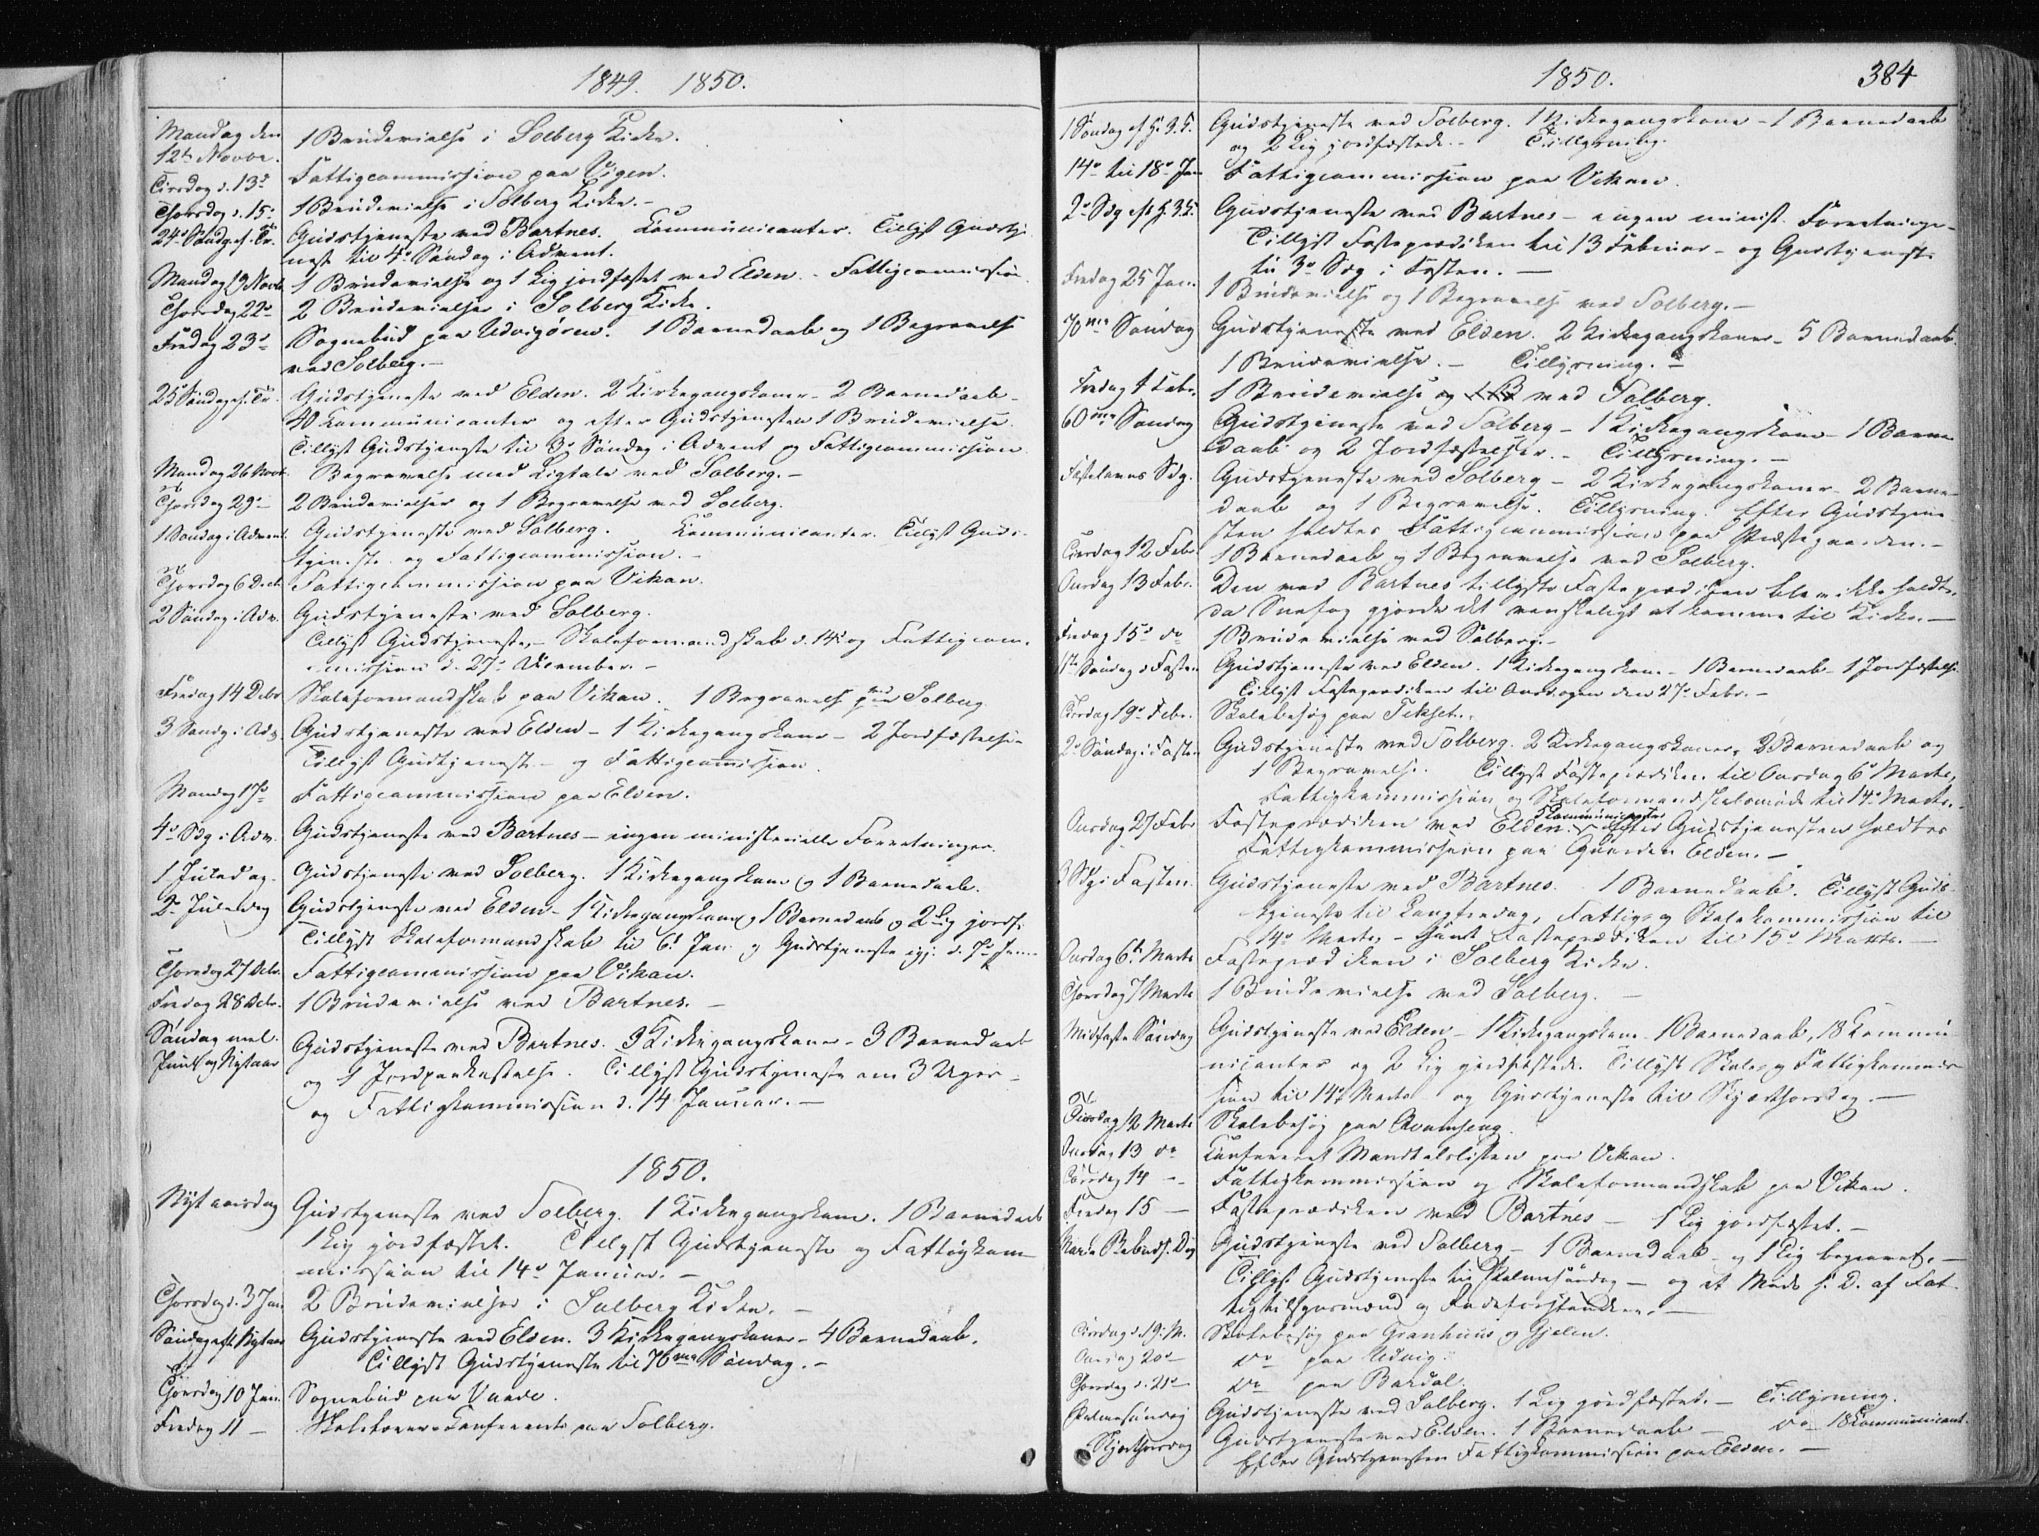 1849. 1850.
Mandag den 12te Novbr. 1 Brudevielse i Solberg Kirke.
Tirsdag d. 13de Fattigcommission paa Vigen.
Thorsdag d. 15. 1 Brudevielse i Solberg Kirke. -
24de Søndag ef. Tr. Gudstjeneste ved Bartnes. Kommunicanter. Tillyst Gudstje-
neste til 4de Søndag i Advent.
Mandag 19 Novb. 1 Brudevielse og 1 Lig jordfæstet ved Elden. - Fattigcommission
Thorsdag 22de 2 Brudevielser i Solberg Kirke.
Fredag 23de Sognebud paa Udvigøren. 1 Barnedaab og 1 Begravelse
ved Solberg. -
25 Søndag ef. Tr. Gudstjeneste ved Elden. 2 Kirkegangskoner - 2 Barnedaab -
40 Kommunicanter og efter Gudstjenesten 1 Brudevielse.
Tillyst Gudstjeneste til 3de Søndag i Advent og Fattigcommission.
Mandag 26 Novb. Begravelse med Ligtale ved Solberg. -
Thorsdag 29de 2 Brudevielser og 1 Begravelse ved Solberg.
1 Søndag i Advent Gudstjeneste ved Solberg. Kommunicanter. Tillyst Guds-
tjeneste og Fattigcommission. -
Thorsdag 6 Decb. Fattigcommission paa Vikan.
2 Søndag i Adv. Gudstjeneste ved Solberg.
Tillyst Gudstjeneste, - Skoleformandskab d. 14de og Fattigcom-
mission d. 27de December. -
Fredag 14 Decbr. Skoleformandskab paa Vikan. 1 Begravelse ved Solberg
3 Søndag i Adv. Gudstjeneste ved Elden - 1 Kirkegangskone - 2 Jordfæstelser
Tillyst Gudtjeneste - og Fattigcommission.
Mandag 17de Fattigcommission paa Elden.
4de Sdg i Adv. Gudstjeneste ved Bartnes - ingen ministerielle Forretninger.
1 Juledag. Gudstjeneste ved Solberg. 1 Kirkegangskone og 1 Barnedaab.
2. Juledag Gudstjeneste ved Elden - 1 Kirkegangskone og 1 Barnedaab og 2 Lig jordf.
Tillyst Skoleformandskab til Jan og Gudstjeneste
Thorsdag 27 Decbr. Fattigcommission paa Vikan.
Fredag 28 Decbr. 1 Brudevielse ved Bartnes. -
Søndag mel.
Juul og Nytaar Gudstjeneste ved Bartnes. 3 Kirkegangskoner - 3 Barnedaab
og 1 Jordpaakastelse. Tillyst Gudstjeneste om 3 Uger -
og Fattigkommission d. 14 Januar. -
1850.
Nytaarsdag Gudstjeneste ved Solberg. 1 Kirkegangskone. 1 Barnedaab
1 Lig jordfæstet. Tillyst Gudstjeneste og Fattigkom-
mission til 14de Januar. -
Thorsdag d. 3 Jan 2 Brudevielser i Solberg Kirke. -
Søndag eft. Nytaar Gudstjeneste ved Elden. 3 Kirkegangskoner - 4 Barnedaab.
Tillyst Gudstjeneste til 70me Søndag. -
Thorsdag 10 Jan. Sognebud paa
Fredag 11 - Skolelærer Konferents paa Solberg.
1850. 384
1 Søndag ef. H. 3. K. Gudstjeneste ved Solberg. 1 Kirkegangskone - 1 Barnedaab
og 2 Lig jordfæstede. - Tillysning.
14de til 18de Jan Fattigcommission paa Vikan.
2de Sdg eft. H. 3. K. Gudstjeneste ved Bartnes - ingen minist. Forretninger -
Tillyst Fasteprædiken til 13 Februar - og Gudstjeneste
til 3de Sdg i Fasten. -
Fredag 25 Jan. 1 Brudevielse og 1 Begravelse ved Solberg. -
70me Søndag Gudstjeneste ved Elden. 2 Kirkegangskoner - 5 Barnedaab.
1 Brudevielse. - Tillysning. -
Fredag 1 Febr. 1 Brudevielse og ved Solberg.
60me Søndag Gudstjeneste ved Solberg - 1 Kirkegangskone - 1 Barne-
daab og 2 Jordfæstelser. - Tillysning. -
Fastelavns Sdg. Gudstjeneste ved Solberg - 2 Kirkegangskoner - 2 Barne-
daab og 1 Begravelse. Tillysning. Efter Gudstjene-
sten holdtes Fattigcommission paa Præstegaarden. -
Tirsdag 12 Febr 1 Barnedaab og 1 Begravelse ved Solberg.
Onsdag 13 Febr. Den ved Bartnes tillyste Fasteprædiken blev ikke holdt,
da Snefog gjorde det vanskeligt at komme til Kirke. -
Fredag 15de do 1 Brudevielse ved Solberg. -
1ste Søndag i Fasten Gudstjeneste ved Elden. 1 Kirkegangskone - 1 Barnedaab - 1 Jordfæstelse
Tillyst Fasteprædiken til Onsdagen den 27de Febr. -
Tirsdag 19de Febr. Skolebesøg paa
2de Søndag i Fasten Gudstjeneste ved Solberg. 2 Kirkegangskoner, 2 Barnedaab og
1 Begravelse. Tillyst Fasteprædiken til Onsdag 6te Marts,
Fattigkommission og Skoleformandskabsmøde til 14de Marts.
Onsdag 27 Febr Fasteprædiken ved Elden. Kommunicanter Efter Gudstjenesten holdtes
Fattigkommission paa Gaarden Elden. -
3 Sdg i Fasten Gudstjeneste ved Bartnes. 1 Barnedaab. Tillyst Guds-
tjeneste til Langfredag, Fattig- og Skolekommission til
14de Marts, - samt Fasteprædiken til 15de Marts. -
Onsdag 6te Marts Fasteprædiken i Solberg Kirke.
Thorsdag 7 Marts 1 Brudevielse ved Solberg. -
Midfaste Søndag Gudstjeneste ved Elden - 1 Kirkegangskone 1 Barnedaab, 18 Kommu-
nicanter og 2 Lig jordfæstede. Tillyst Skole- og Fattigkommis-
sion til 14de Marts og Gudstjeneste til Skjærthorsdag. -
Tirsdag 12 Marts Skolebesøg paa
Onsdag 13 do Konfereret Mandtalslisten paa Vikan.
Torsdag 14 - Fattigkommission og Skoleformandskab paa Vikan.
Fredag 15 - Fasteprædiken ved Bartnes - 1 Lig jordfæstet. -
Mariæ Bebud. Dag Gudstjeneste ved Solberg - 1 Barnedaab - og 1 Lig begravet. -
Tillyst Gudstjeneste til Palmesøndag - og et Møde s. D. af Fat-
tigtilsynsmænd og
Tirsdag d. 19. M. Skolebesøg paa Granhuus og Gjelen.
Onsdag 20de do paa Udvig.
Thorsdag d. 21de do paa Bardal.
Palmesøndag Gudstjeneste ved Solberg. 1 Lig jordfæstet. - Tillysning.
Skjærthorsdag Gudstjeneste ved Elden. 1 Barnedaab - do 18 Communicant.
Efter Gudstjenesten Fattigkommission paa Elden. -